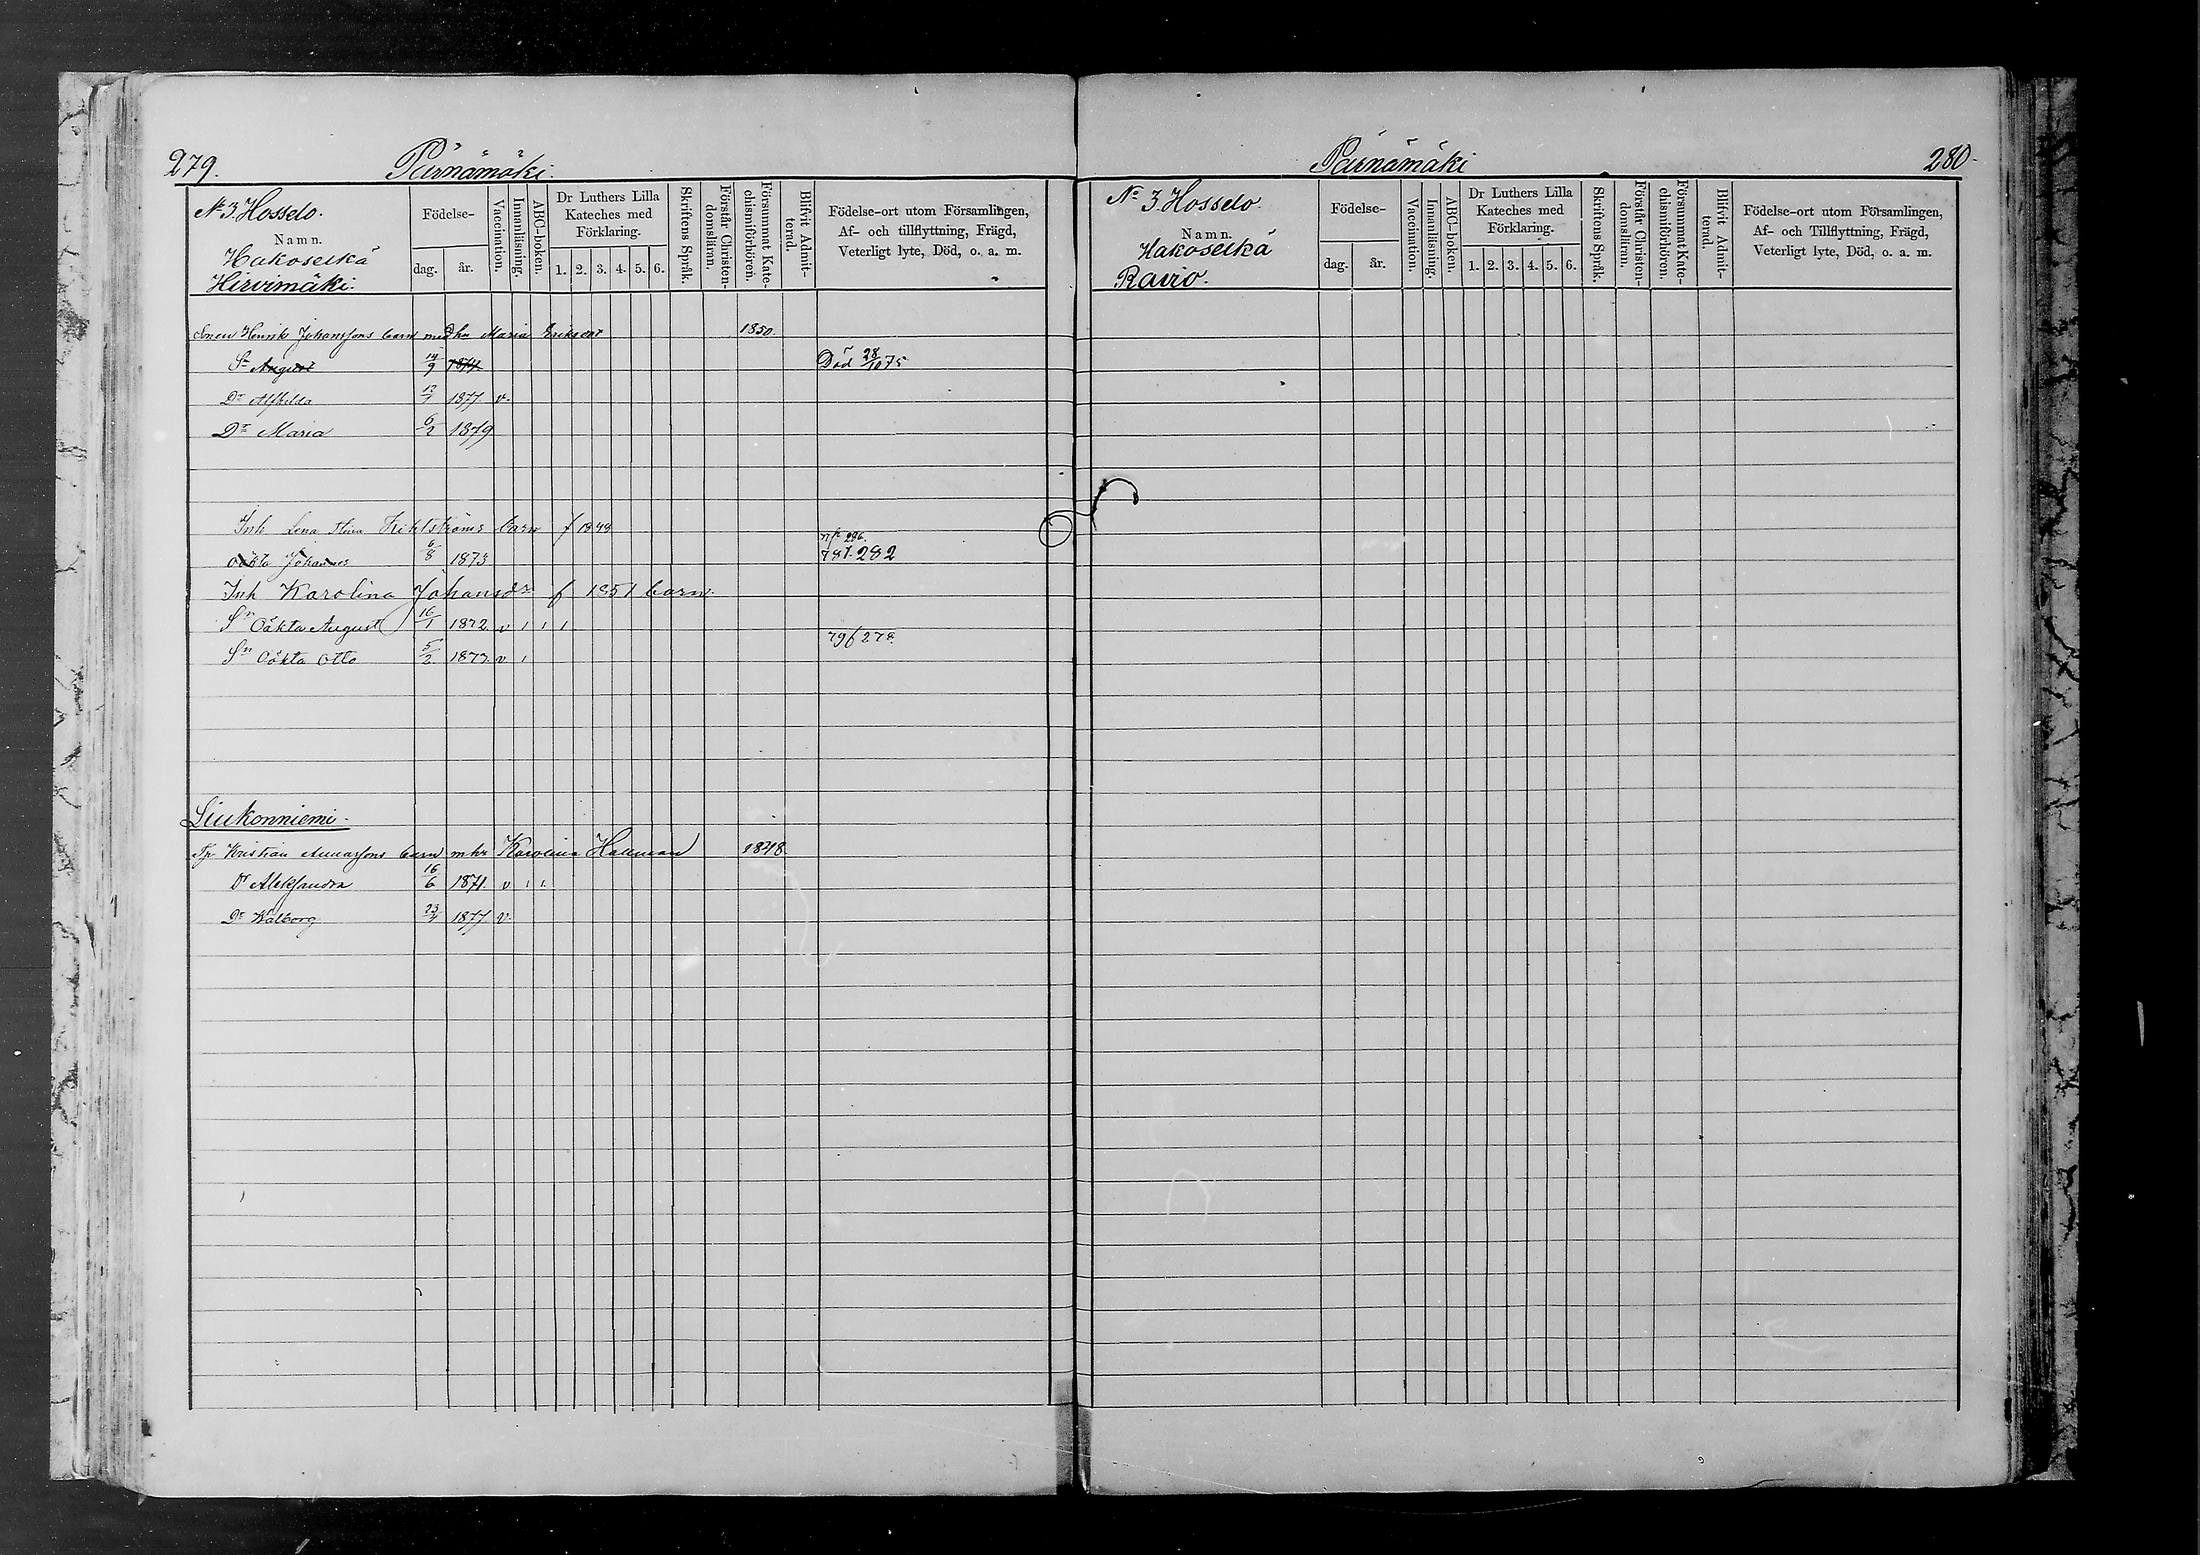 279.
Pärnämäki.
No 3. Hosselo.
Namn.
Hakoselkä
Hirvimäki.
Födelse-
dag. år.
Vaccination.
Innanläsning.
ABC-boken.
Dr Luthers Lilla Kateches med Förklaring.
1. 2. 3. 4. 5. 6.
Skriftens Språk.
Förstår Christendomsläran.
Försummat Katechismiförhören.
Blifvit Admitterad.
Födelse-ort utom Församlingen,
Af- och tillflyttning, Frägd,
Veterligt lyte, Död, o. a. m.
Sonen Henrik Johanssons barn med hu Maria Eriksdr 1850.
Sn August 14/9 1874. Död 28/10 75
Dr Alfhilda 1877. v.
Dr Maria 6/2 1879
Inh Lena Stina barn f 1849
Oäkta Johannes 6/8 1873 286.
78 f. 282
Inh Karolina Johansdr f 1851 barn.
Sn Oäkta August 16/1 1872. v 1 1 1
Sn Oäkta Otto 5/2 1873. v 1 79 f 278.
Liukonniemi.
Tp Kristian barn m hu Karolina Hallman 1848.
Dr Aleksandra 16/6 1871. v 1 1.
Dr Walborg 1877. v.
Pärnämäki
280.
No 3. Hosselo.
Namn.
Hakoselkä
Ravio.
Födelse-
dag. år.
Vaccination.
Innanläsning.
ABC-boken.
Dr Luthers Lilla
Kateches med
Förklaring.
1. 2. 3. 4. 5. 6.
Skriftens Språk.
Förstår Christendomsläran.
Försummat Katechismiförhören.
Blifvit Admitterad.
Födelse-ort utom Församlingen,
Af- och Tillflyttning, Frägd,
Veterligt lyte, Död, o. a. m.